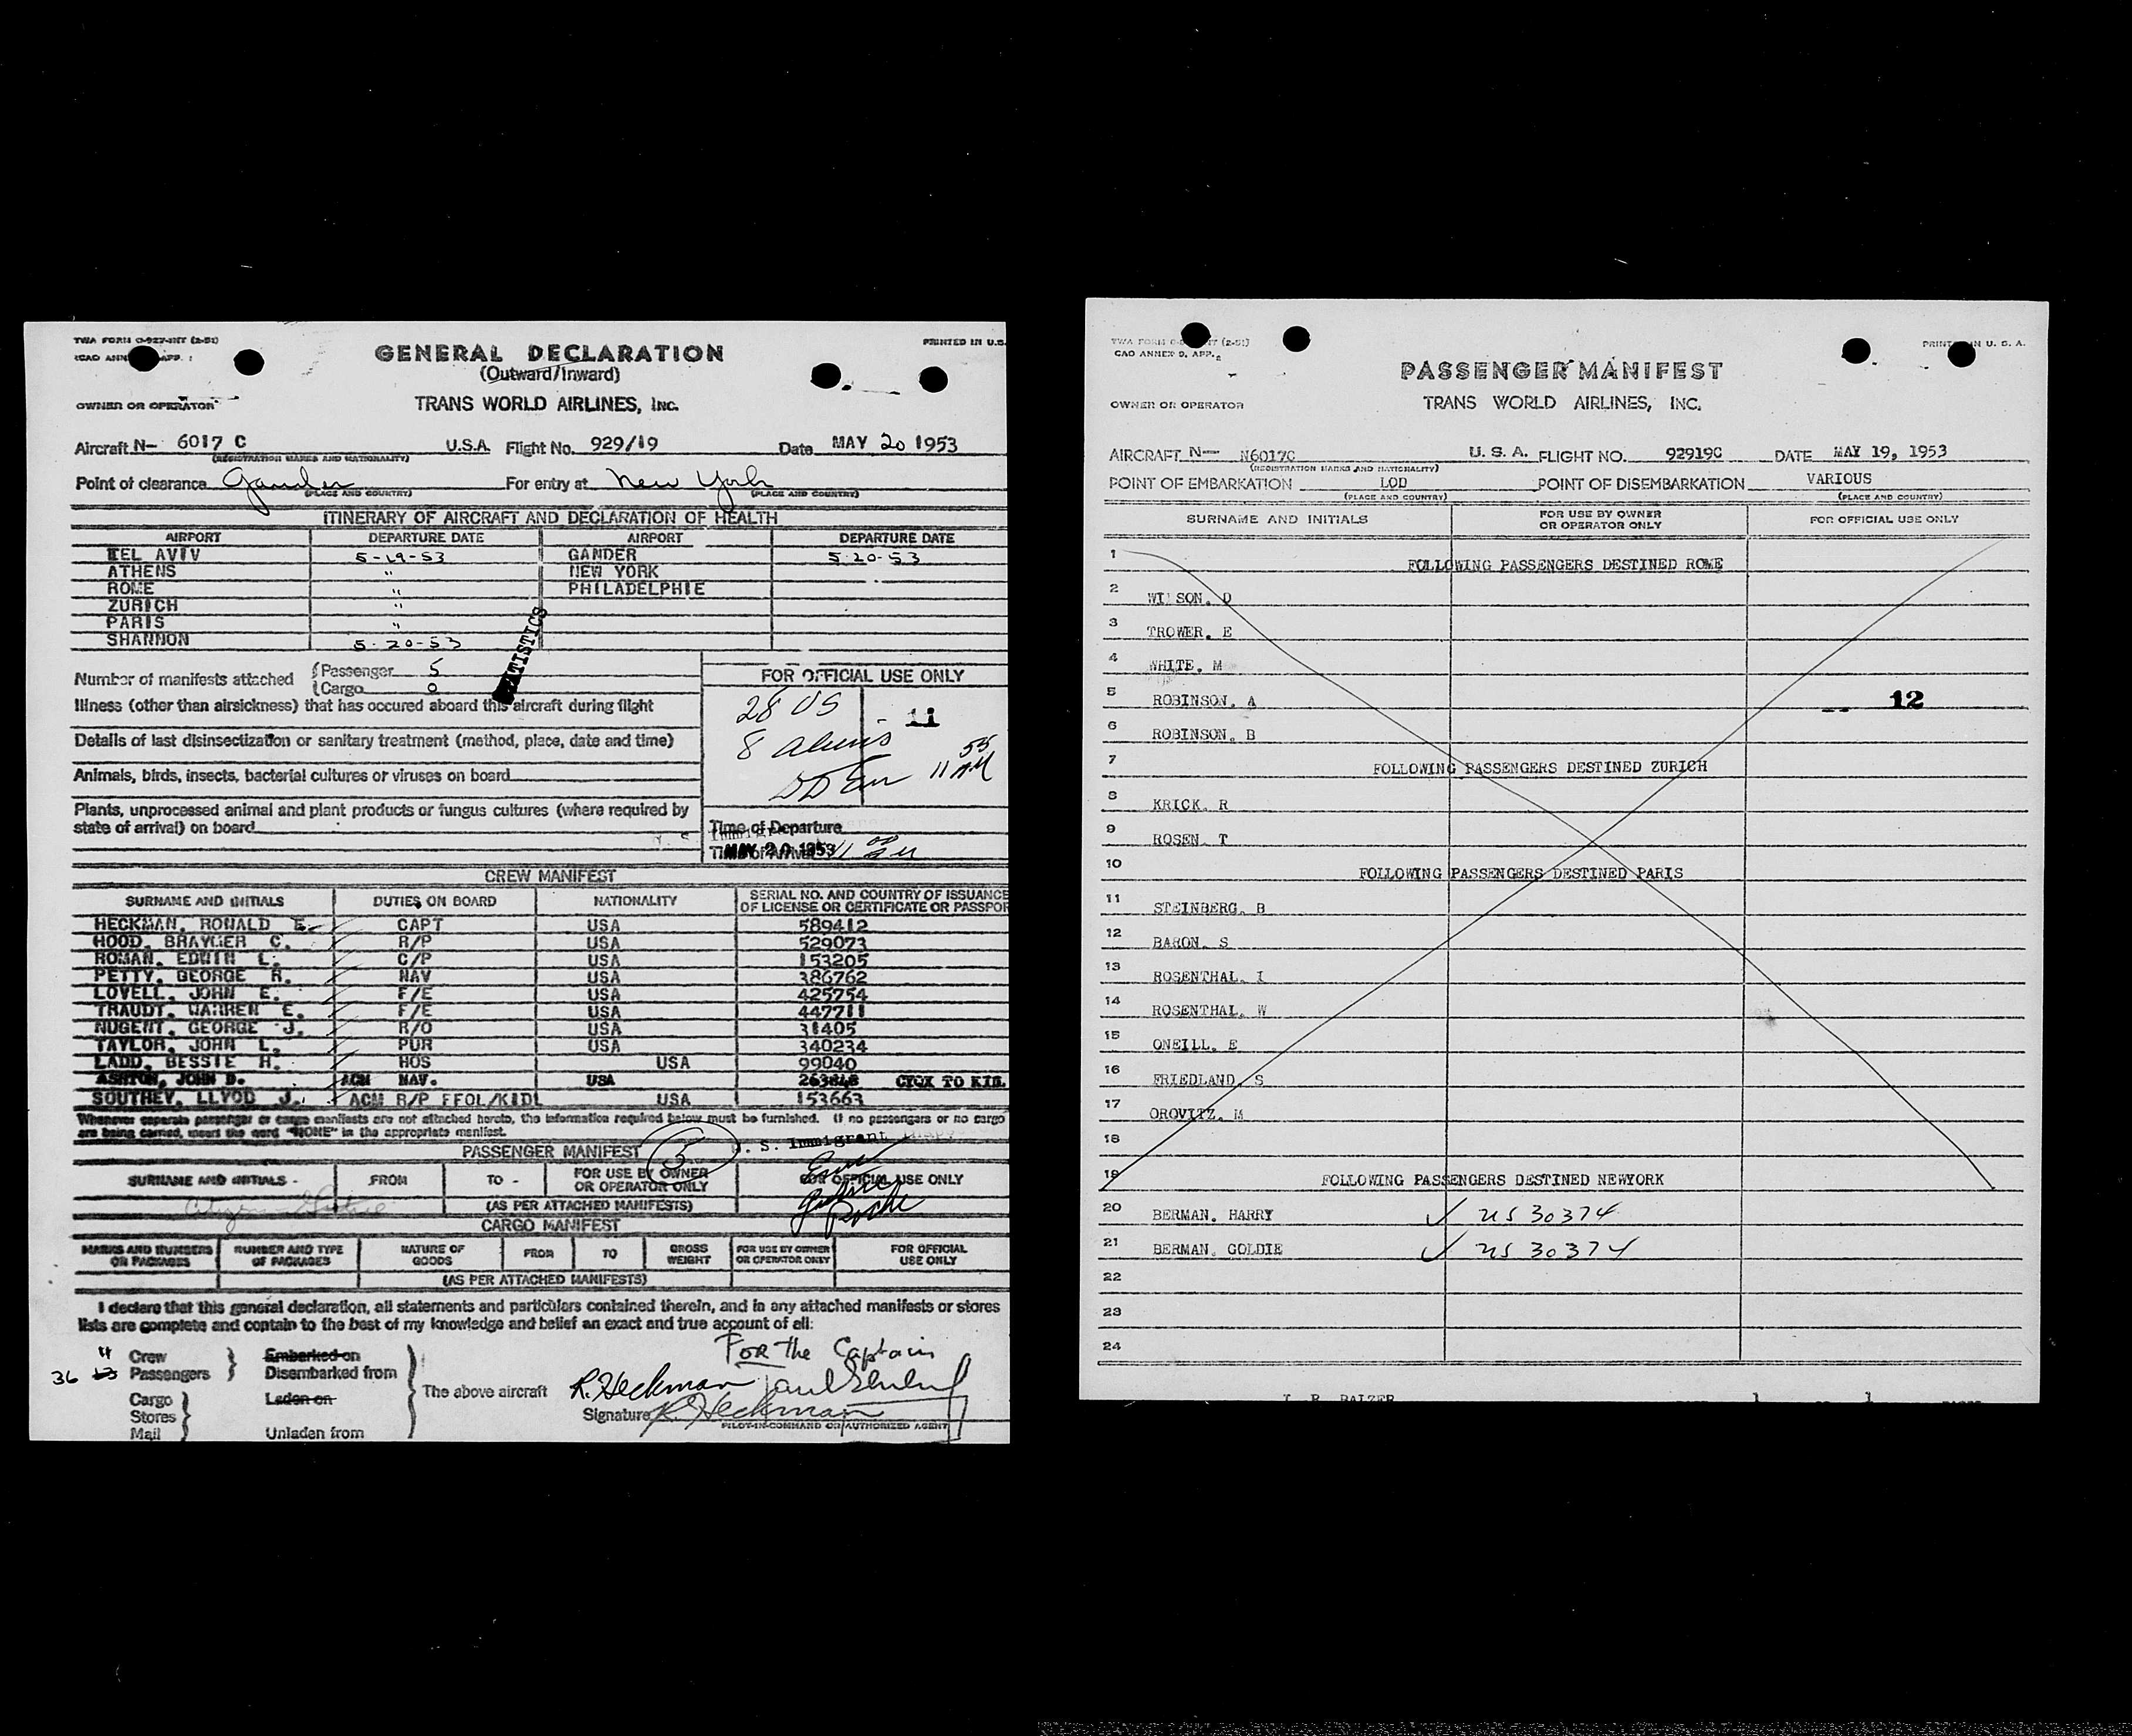 TWA FORM O-927-INT (2-51)
ICAO ANNEX APP. 1
PRINTED IN U.S.
GENERAL DECLARATION
(Outward/Inward)
OWNER OR OPERATOR
TRANS WORLD AIRLINES, INC.
Aircraft N- 6017 C U.S.A. Flight No. 929/19 Date MAY 20 1953
(REGISTRATION MARKS AND NATIONALITY)
Point of clearance Gander For entry at New York
(PLACE AND COUNTRY) (PLACE AND COUNTRY)
ITINERARY OF AIRCRAFT AND DECLARATION OF HEALTH
AIRPORT DEPARTURE DATE AIRPORT DEPARTURE DATE
TEL AVIV 5-19-53 GANDER 5-20-53
ATHENS " NEW YORK
ROME " PHILADELPHIE
ZURICH "
PARIS "
SHANNON 5-20-53
Number of manifests attached (Passenger 5
(Cargo 0
FOR OFFICIAL USE ONLY
28 US - 11
8 aliens
11 55 AM
Illness (other than airsickness) that has occured aboard this aircraft during flight
Details of last disinsectization or sanitary treatment (method, place, date and time)
Animals, birds, insects, bacterial cultures or viruses on board
Plants, unprocessed animal and plant products or fungus cultures (where required by
state of arrival) on board
Time of Departure
Time of Arrival
MAY 20 1953
CREW MANIFEST
SURNAME AND INITIALS DUTIES ON BOARD NATIONALITY SERIAL NO. AND COUNTRY OF ISSUANCE
OF LICENSE OR CERTIFICATE OR PASSPOR
HECKMAN, RONALD E. CAPT USA 589412
HOOD, BRAYGER C. R/P USA 529073
ROMAN, EDWIN L. C/P USA 153205
PETTY, GEORGE R. NAV USA 386762
LOVELL, JOHN E. F/E USA 425754
TRAUDT, WARREN E. F/E USA 447711
NUGENT, GEORGE J. R/O USA 31405
TAYLOR, JOHN L. PUR USA 340234
LADD, BESSIE H. HOS USA 99040
ASHTON, JOHN D. ACM NAV. USA 263848 CYQX TO KID.
SOUTHEY, LLYOD J. ACM R/P FFOL/KIDL USA 153663
Whenever separate passenger or cargo manifests are not attached hereto, the information required below must be furnished. If no passengers or no cargo
are being carried, insert the word "NONE" in the appropriate manifest.
PASSENGER MANIFEST 5 . S. Immigrant
SURNAME AND INITIALS - FROM TO - FOR USE BY OWNER
OR OPERATOR ONLY FOR OFFICIAL USE ONLY
(AS PER ATTACHED MANIFESTS)
CARGO MANIFEST
MARKS AND NUMBERS
ON PACKAGES NUMBER AND TYPE
OF PACKAGES NATURE OF
GOODS FROM TO GROSS
WEIGHT FOR USE BY OWNER
OR OPERATOR ONLY FOR OFFICIAL
USE ONLY
(AS PER ATTACHED MANIFESTS)
I declare that this general declaration, all statements and particulars contained therein, and in any attached manifests or stores
lists are complete and contain to the best of my knowledge and belief an exact and true account of all:
FOR the Captain
11 Crew Embarked on
36 Passengers Disembarked from
Cargo Laden on The above aircraft R. Heckman
Stores Signature R. Heckman
PILOT-IN-COMMAND OR AUTHORIZED AGENT
Mail Unladen from
TWA FORM (2-51)
CAO ANNEX 9, APP. 2
PRINT IN U. S. A.
PASSENGER MANIFEST
OWNER OR OPERATOR
TRANS WORLD AIRLINES, INC.
AIRCRAFT N- N6017C U. S. A. FLIGHT NO. 92919C DATE MAY 19, 1953
(REGISTRATION MARKS AND NATIONALITY)
POINT OF EMBARKATION LOD POINT OF DISEMBARKATION VARIOUS
(PLACE AND COUNTRY) (PLACE AND COUNTRY)
SURNAME AND INITIALS FOR USE BY OWNER
OR OPERATOR ONLY FOR OFFICIAL USE ONLY
1 FOLLOWING PASSENGERS DESTINED ROME
2 WILSON. D
3 TROWER. E
4 WHITE. M
5 ROBINSON. A 12
6 ROBINSON. B
7 FOLLOWING PASSENGERS DESTINED ZURICH
8 KRICK. R
9 ROSEN. T
10 FOLLOWING PASSENGERS DESTINED PARIS
11 STEINBERG. B
12 BARON. S
13 ROSENTHAL. I
14 ROSENTHAL. W
15 ONEILL. E
16 FRIEDLAND. S
17 OROVITZ. M
18
19 FOLLOWING PASSENGERS DESTINED NEWYORK
20 BERMAN. HARRY ✓ US 30374
21 BERMAN. GOLDIE ✓ US 30374
22
23
24